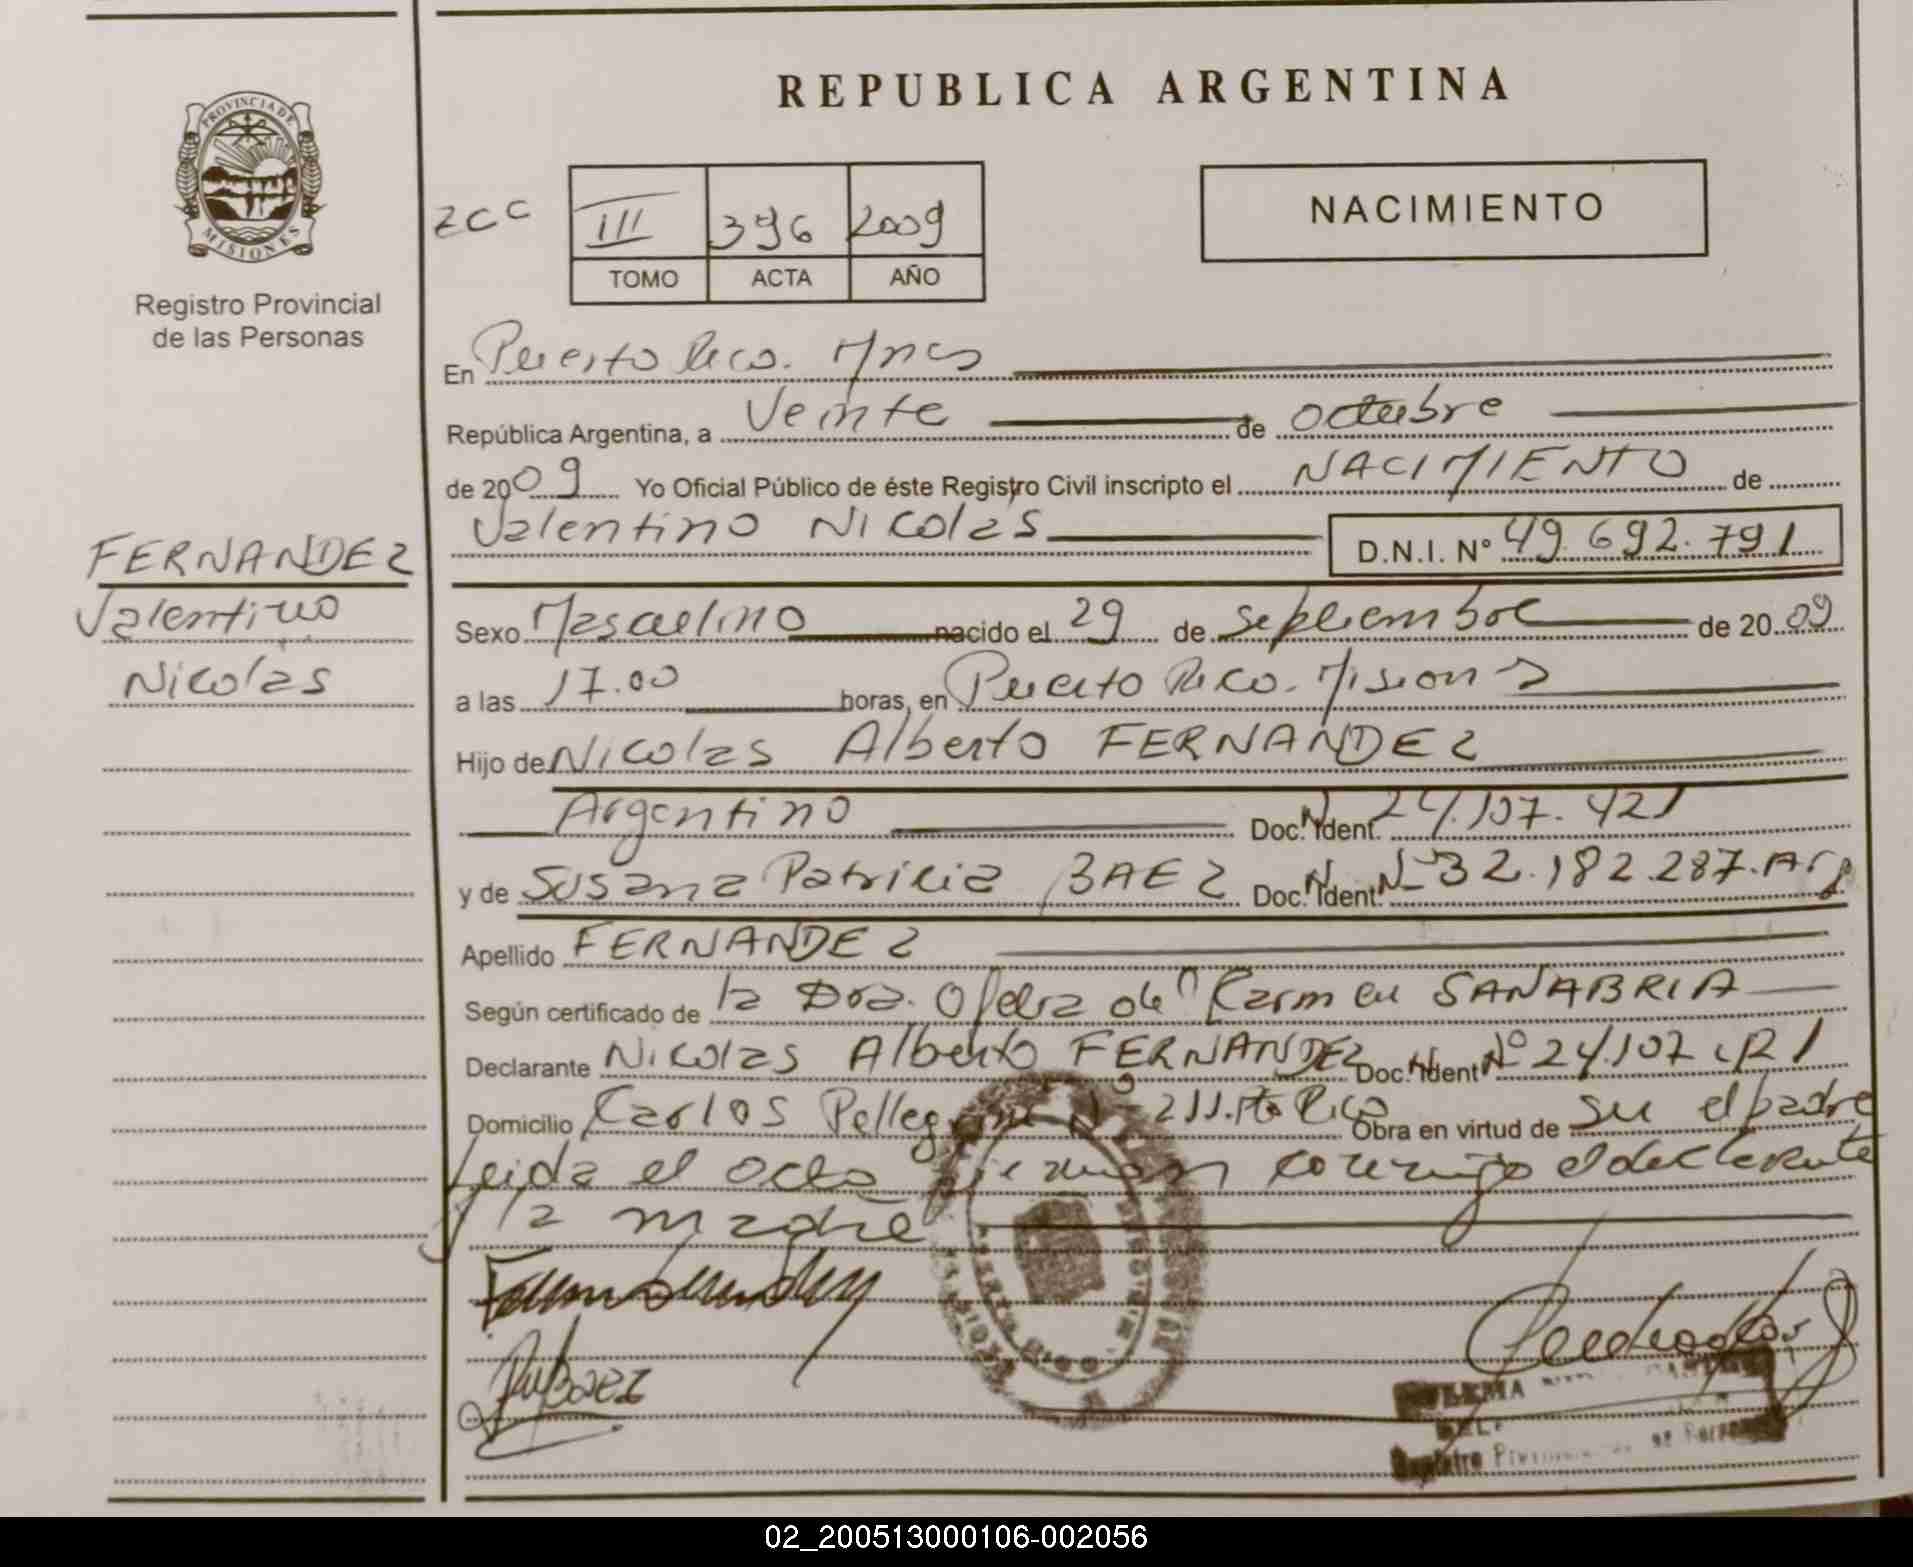 PROVINCIA DE
MISIONES
Registro Provincial
de las Personas
FERNANDEZ
Valentino
Nicolás
REPUBLICA ARGENTINA
ZCC
III 396 2009
TOMO ACTA AÑO
NACIMIENTO
En Puerto Rico. Mnes
República Argentina, a Veinte de octubre
de 2009 Yo Oficial Público de éste Registro Civil inscripto el NACIMIENTO de
Valentino Nicolás D.N.I. N° 49.692.791
Sexo Masculino nacido el 29 de septiembre de 2009
a las 17.00 horas, en Puerto Rico. Misiones
Hijo de Nicolás Alberto FERNANDEZ
Argentino Doc. Ident. N 24.107.421
y de Susana Patricia BAEZ Doc. Ident. N 32.182.287. Arg
Apellido FERNANDEZ
Según certificado de la Dra. Ofelia del Carmen SANABRIA
Declarante Nicolás Alberto FERNANDEZ Doc. Ident N° 24.107.421
Domicilio Carlos Pellegrini N° 211. Pto Rico Obra en virtud de su el padre
Leida el acta firman conmigo el declarante
y la madre
Baez
Registro
02_200513000106-002056